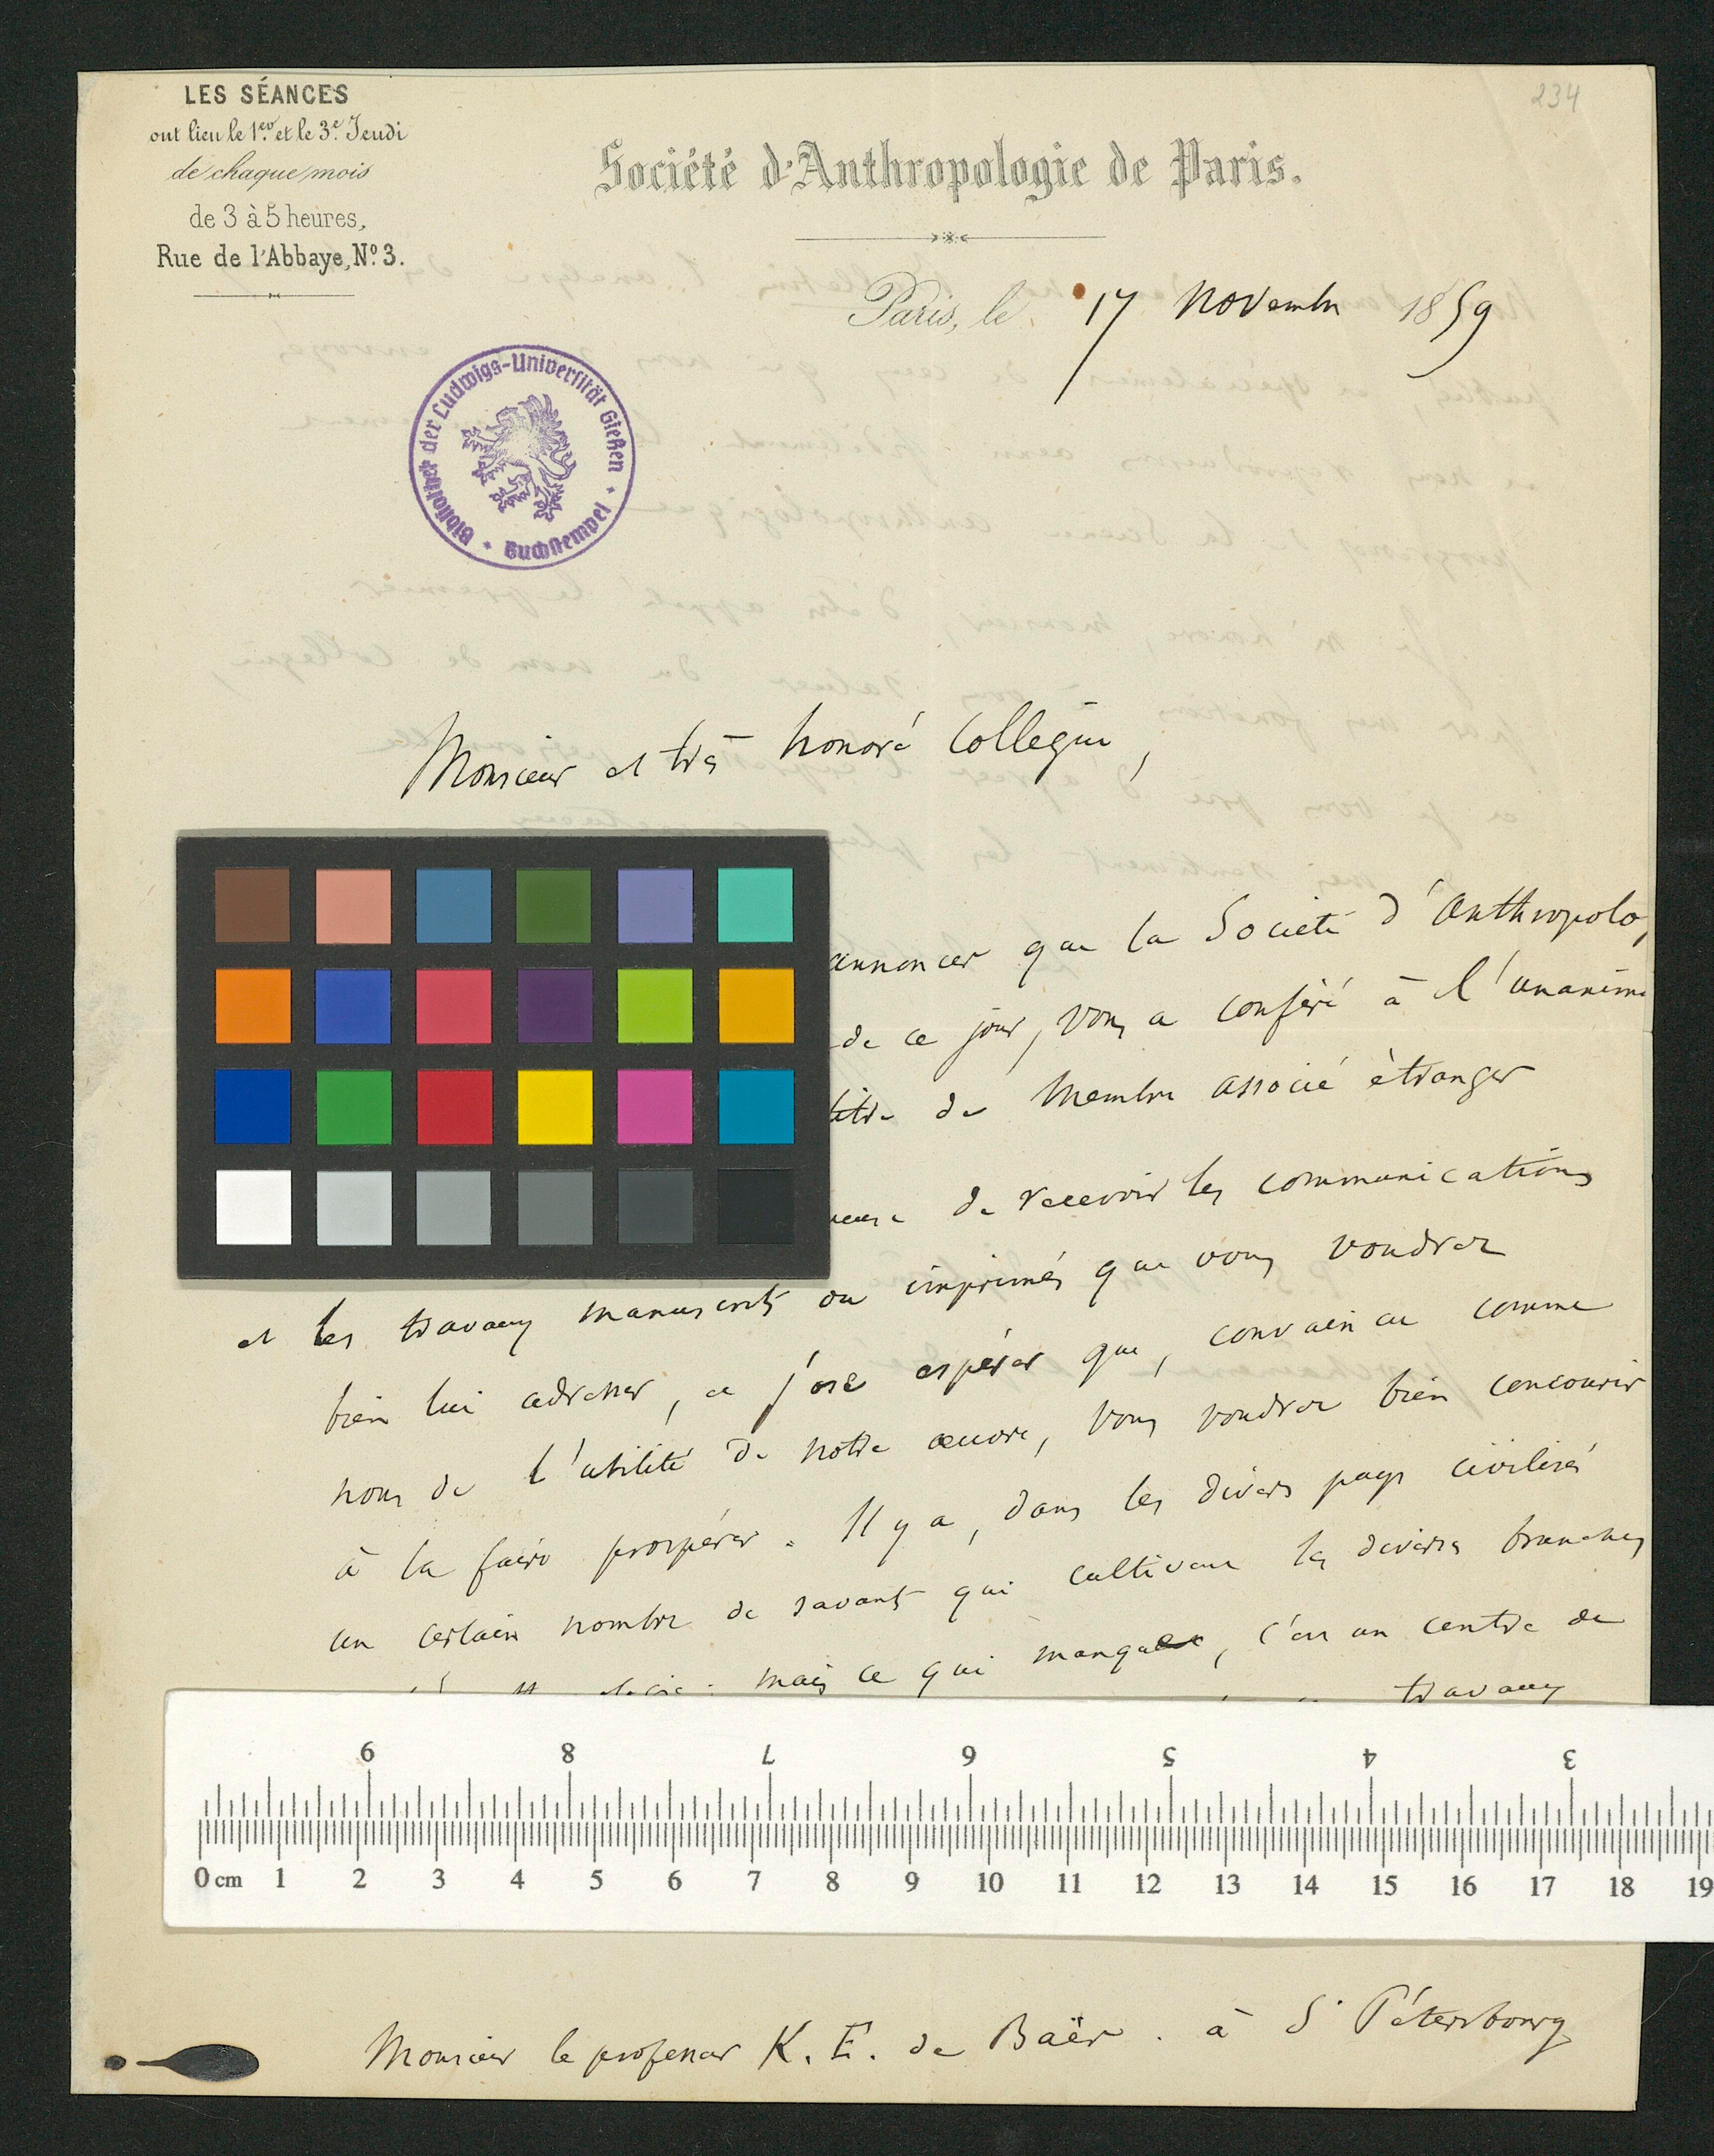 LES SÉANCES
ont lieu le 1er et le 3e Jeudi
de chaque mois
de 3 à 5 heures,
Rue de l'Abbaye, No. 3.
234
Société d'Anthropologie de Paris.
Paris, le 17 Novembre 1859
Bibliothek der Ludwigs-Universität Gießen * Buchstempel *
Monsieur et très honoré Collègue,
annoncer que la Société d'Anthropolo
de ce jour, vous a conféré à l'unanim
titre de Membre associé étranger
de recevoir les communications
et les travaux manuscrits ou imprimés que vous voudrez
bien lui adresser, et j'ose espérer que, convaincu comme
nous de l'utilité de notre œuvre, vous voudrez bien concourir
à la faire prospérer. Il y a, dans les divers pays civilisés
un certain nombre de savants qui cultivent les diverses branches
mais ce qui manque, c'est un centre de
travaux
9 8 7 6 5 4 3
0 cm 1 2 3 4 5 6 7 8 9 10 11 12 13 14 15 16 17 18 19
Monsieur le professeur K. E. de Baër. à St Pétersbourg